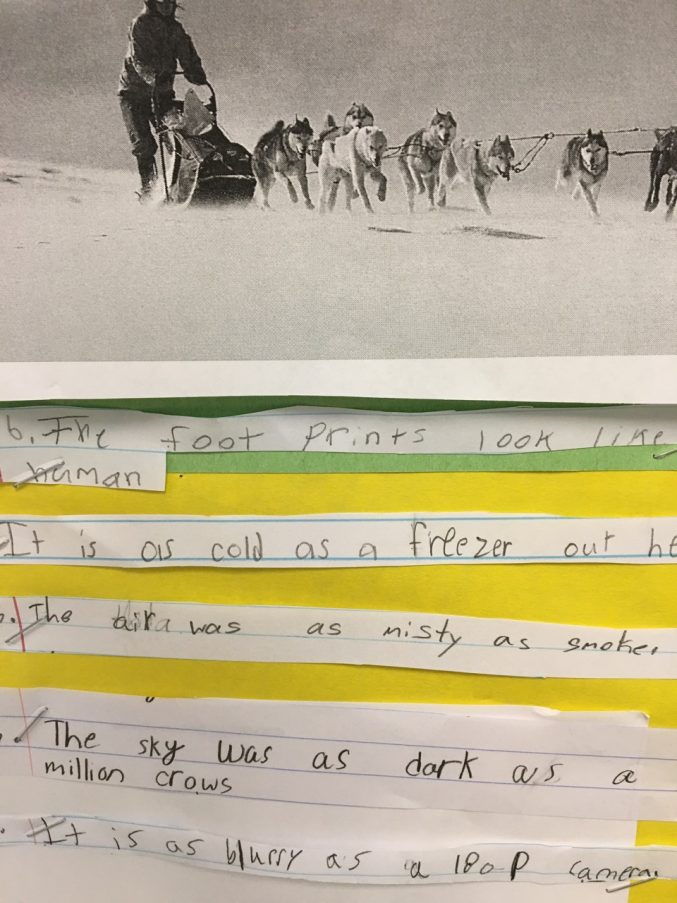 6. The foot prints look like
human
It is as cold as a freezer out he
. The air was as misty as smoke.
. The sky was as dark as a
million crows
. It is as blurry as a 180P camera.